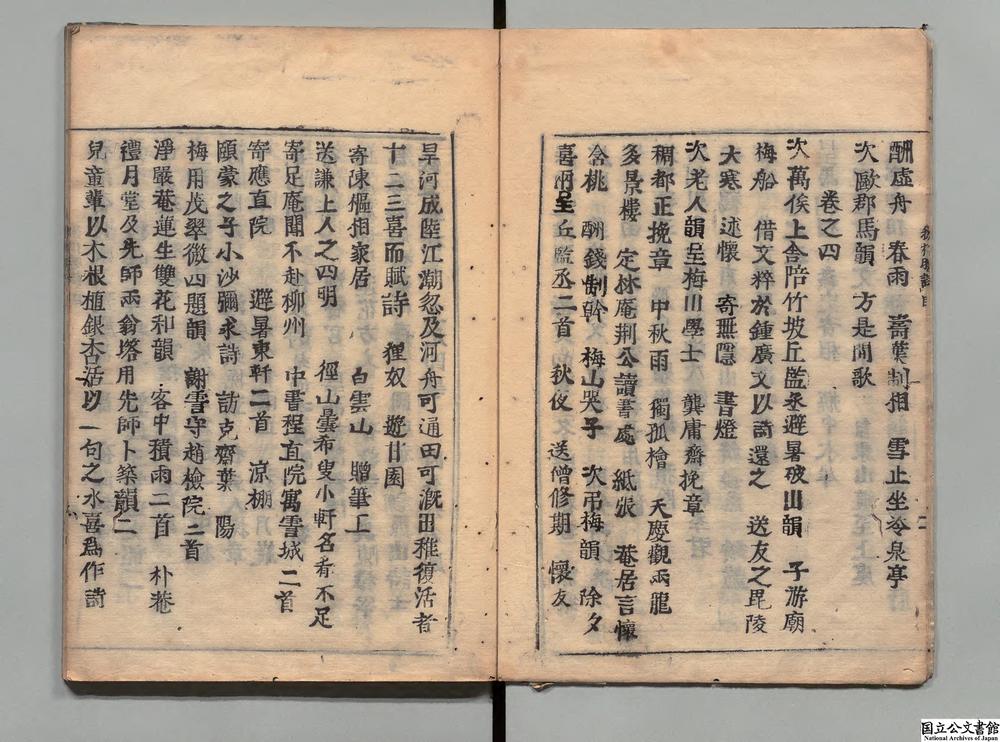 酬虛舟　春雨　壽葉制相　雪止坐冷泉亭
次歐郡馬韻　方是閒歌
卷之四
次萬俟上舍陪竹坡丘監丞避暑破山韻　子游廟
梅船　借文粹於鍾廣文以詩還之　送友之毘陵
大寒　述懷　寄無隱　書燈
次老人韻呈梅川學士　龔庸齋挽章
稠都正挽章　中秋雨　獨孤檜　天慶觀兩龍
多景樓　定林庵荆公讀書處　紙張　菴居言懷
含桃　酬錢制幹　梅山哭子　次吊梅韻　除夕
喜雨呈丘監丞二首　秋夜　送僧修期　懷友
旱河成陸江潮忽及河舟可通田可漑田稚復活者
十二三喜而賦詩　狸奴　遊廿園
寄陳傴相家居　白雲山　贈筆工
送謙上人之四明　徑山曇布叟小軒名看不足
寄足庵聞不赴柳州　中書程直院寓雪城二首
寄應直院　避暑東軒二首　涼棚
頤蒙之子小沙彌求詩　訪克齋葉　陽
梅用茂翠微四題韻　謝雪守趙檢院二首
淨嚴菴蓮生雙花和韻　客中積雨二首　朴菴
禮月堂及先師兩翁塔用先師卜築韻二
兒童輩以木根植銀杏活以一句之水喜爲作詩
国立公文書館
National Archives of Japan